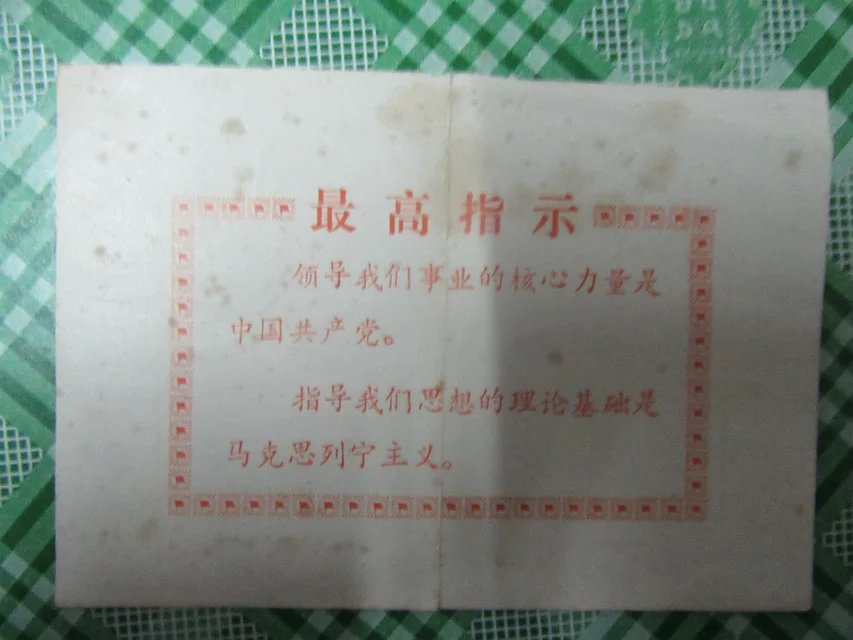 最高指示
领导我们事业的核心力量是
中国共产党。
指导我们思想的理论基础是
马克思列宁主义。